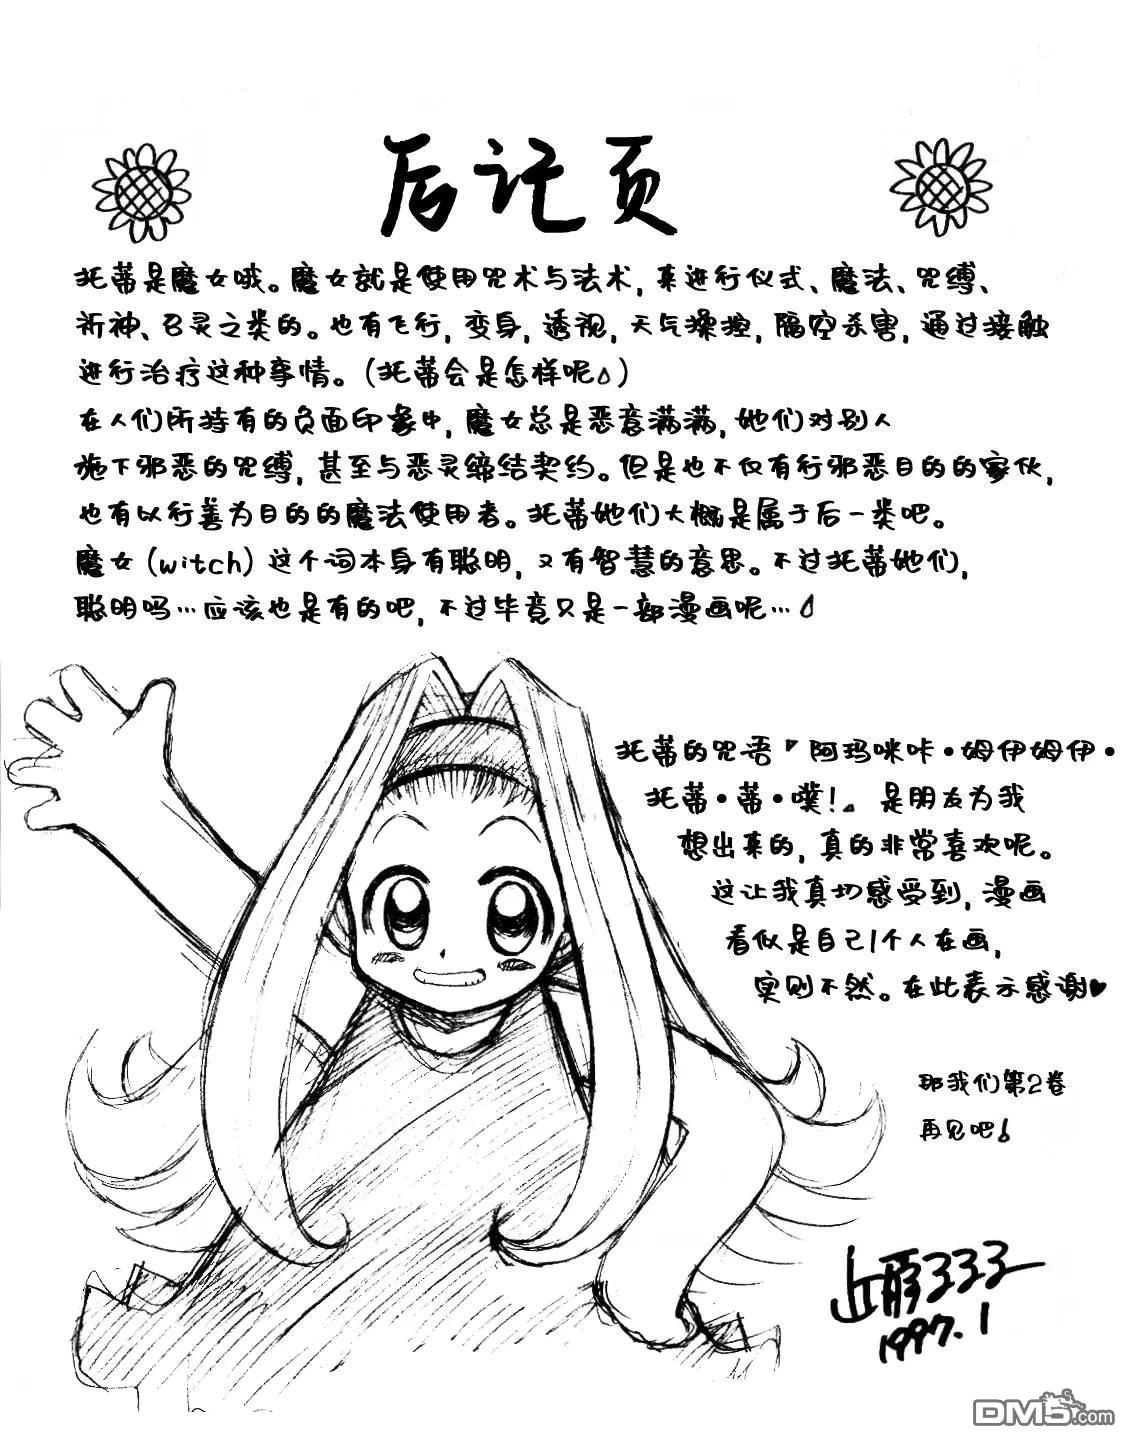 后记页
托蒂是魔女哦。魔女就是使用咒术与法术,来进行仪式、魔法、咒缚、
祈神、召灵之类的。也有飞行,变身,透视,天气操控,隔空杀害,通过接触
进行治疗这种事情。(托蒂会是怎样呢)
在人们所持有的负面印象中,魔女总是恶意满满,她们对别人
施下邪恶的咒缚,甚至与恶灵缔结契约。但是也不仅有行邪恶目的的家伙,
也有以行善为目的的魔法使用者。托蒂她们大概是属于后一类吧。
魔女(witch)这个词本身有聪明,又有智慧的意思。不过托蒂她们,
聪明吗…应该也是有的吧,不过毕竟只是一部漫画呢…
托蒂的咒语『阿玛咪咔·姆伊姆伊·
托蒂·蒂·噗!』是朋友为我
想出来的,真的非常喜欢呢。
这让我真切感受到,漫画
看似是自己1个人在画,
实则不然。在此表示感谢♥
那我们第2卷
再见吧!
1997.1
DM5.com